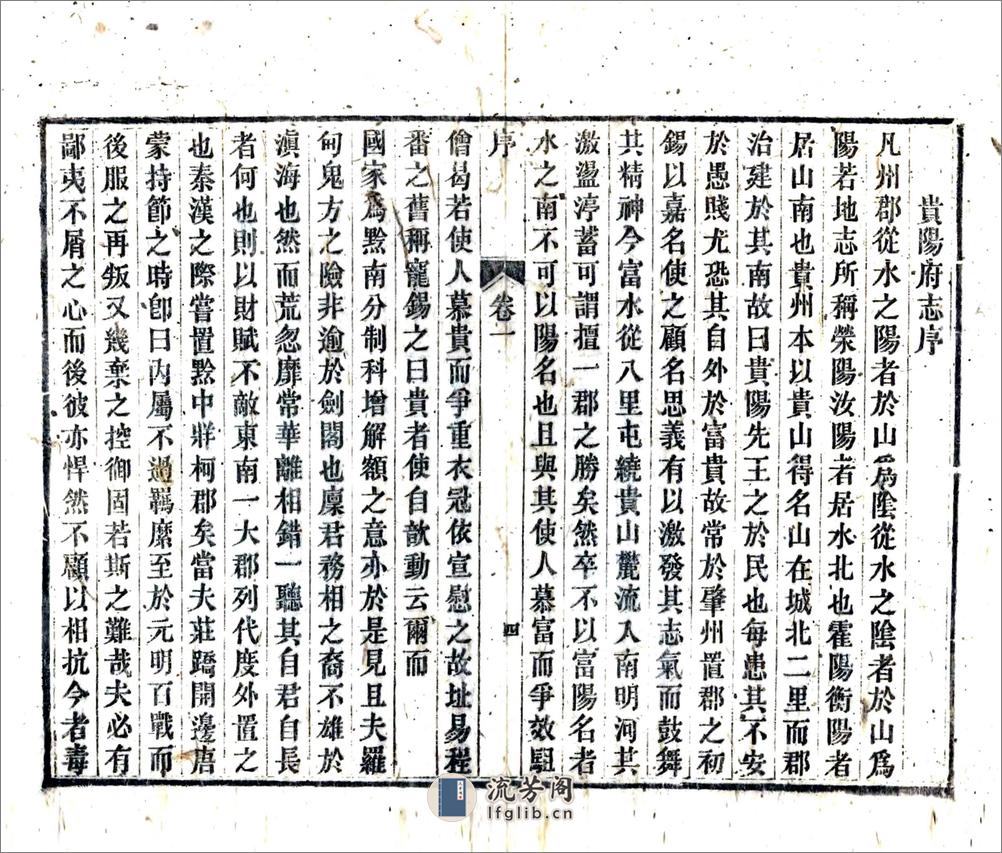 貴陽府志序
凡州郡從水之陽者於山為陰從水之陰者於山為
陽若地志所稱滎陽汝陽者居水北也霍陽衡陽者
居山南也貴州本以貴山得名山在城北二里而郡
治建於其南故曰貴陽先王之於民也每患其不安
於愚賤尤恐其自外於富貴故常於肇州置郡之初
錫以嘉名使之顧名思義有以激發其志氣而鼓舞
其精神今富水從八里屯繞貴山麓流入南明河其
激盪渟蓄可謂擅一郡之勝矣然卒不以富陽名者
水之南不可以陽名也且與其使人慕富而爭效駔
序 卷一 四
僧曷若使人慕貴而爭重衣冠依宣慰之故址易程
番之舊稱寵錫之曰貴者使自歆動云爾而
國家爲黔南分制科增解額之意亦於是見且夫羅
甸鬼方之險非逾於劍閣也廩君務相之裔不雄於
滇海也然而荒忽靡常華離相錯一聽其自君自長
者何也則以財賦不敵東南一大郡列代度外置之
也秦漢之際嘗置黔中牂柯郡矣當夫莊蹻開邊唐
蒙持節之時卽曰內屬不過羈縻至於元明百戰而
後服之再叛又幾棄之控御固若斯之難哉夫必有
鄙夷不屑之心而後彼亦悍然不顧以相抗今者毒
流芳阁
lfglib.cn